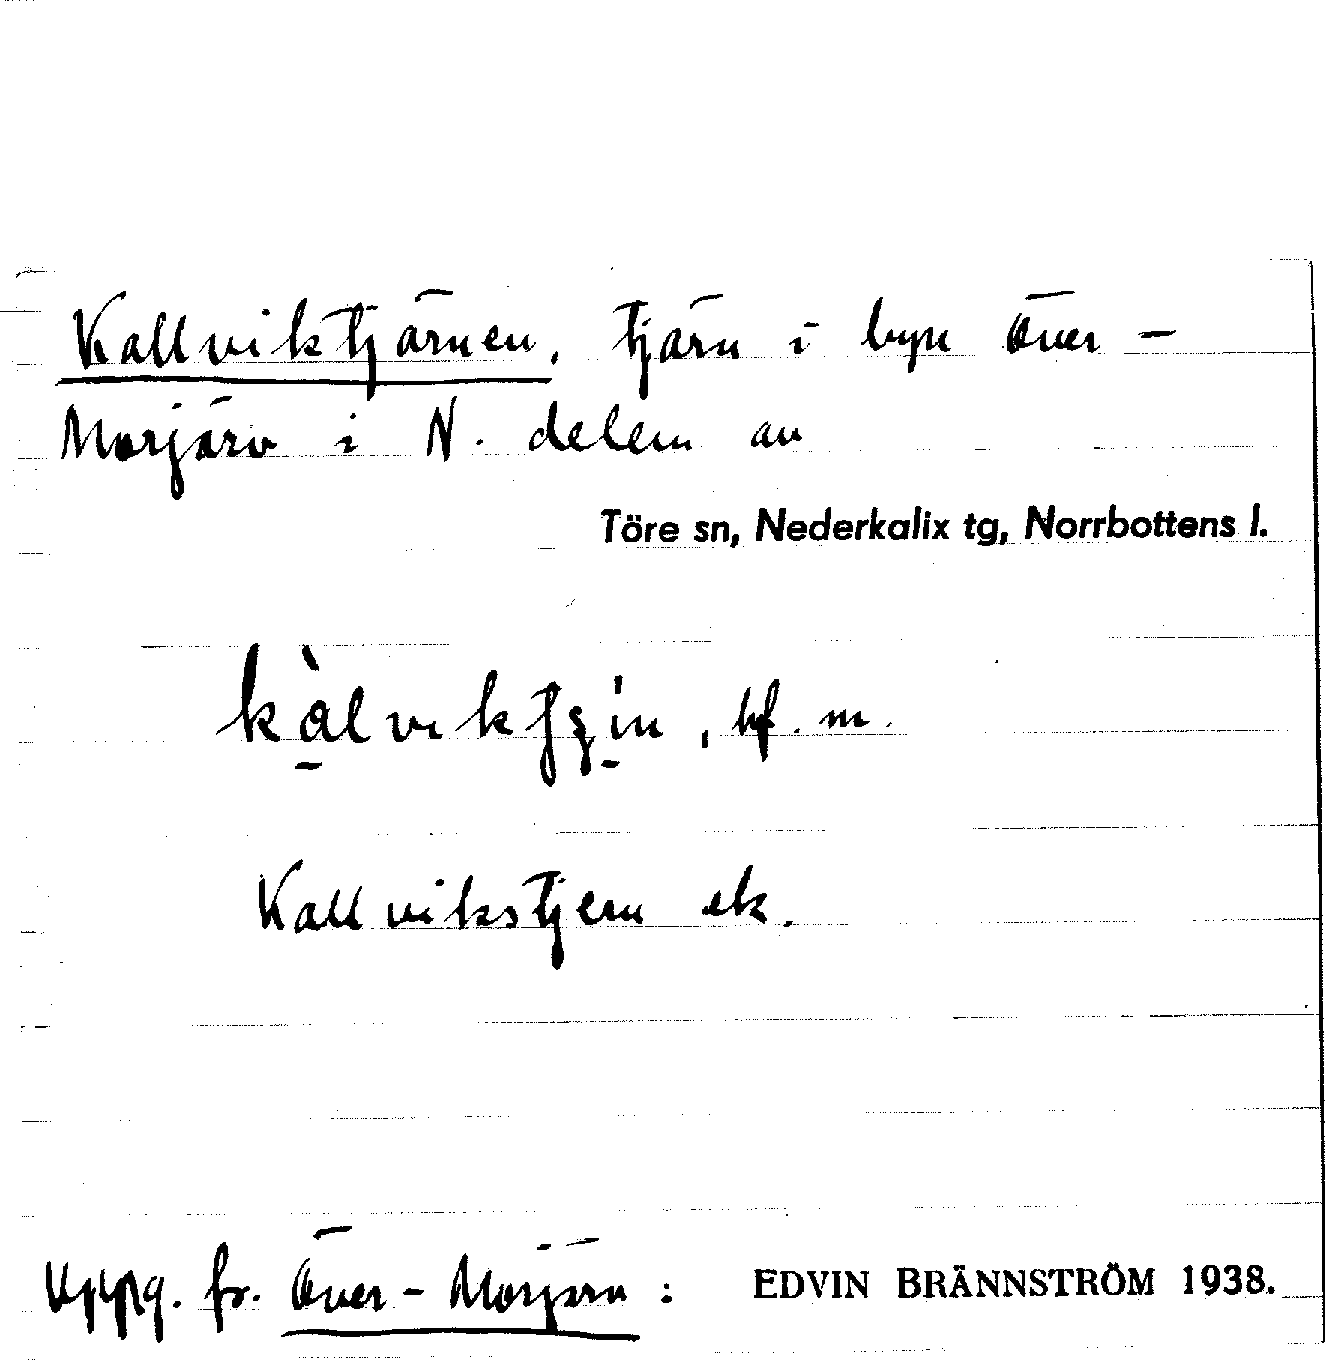 Kallviktjärnen, tjärn i byn Över-
Morjärv i N. delen av
Töre sn, Nederkalix tg, Norrbottens l.
bf. m.
Kallvikstjern ek.
Uppg. fr. Över-Morjärv: EDVIN BRÄNNSTRÖM 1938.